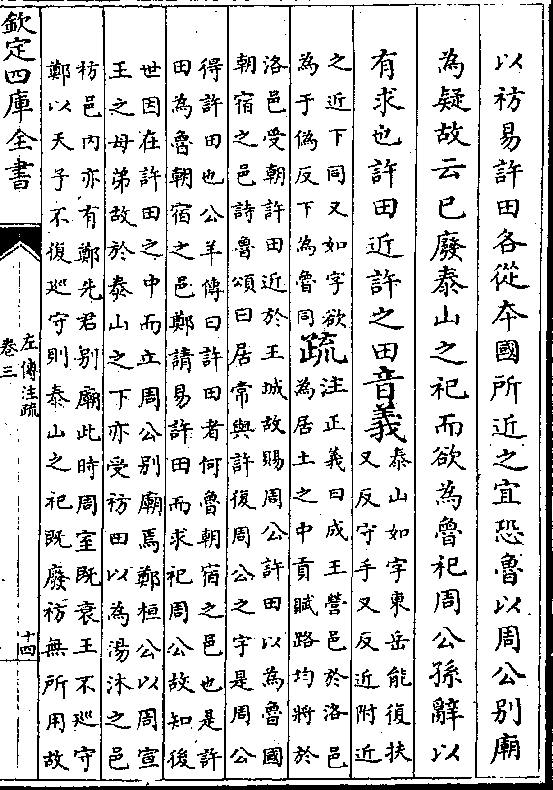 以祊易許田各從本國所近之宜恐魯以周公别廟
為疑故云已廢泰山之祀而欲為魯祀周公孫辭以
有求也許田近許之田音義泰山如字東岳能復扶
又反守手又反近附近
之近下同又如字欲
為于偽反下為魯同疏注正義曰成王營邑於洛邑
為居土之中貢賦路均將於
洛邑受朝許田近於王城故賜周公許田以為魯國
朝宿之邑詩魯頌曰居常與許復周公之宇是周公
得許田也公羊傳曰許田者何魯朝宿之邑也是許
田為魯朝宿之邑鄭請易許田而求祀周公故知後
世因在許田之中而立周公别廟焉鄭桓公以周宣
王之母弟故於泰山之下亦受祊田以為湯沐之邑
祊邑内亦有鄭先君别廟此時周室既衰王不廵守
鄭以天子不復廵守則泰山之祀既廢祊無所用故
欽定四庫全書
左傳注疏
卷三
十四